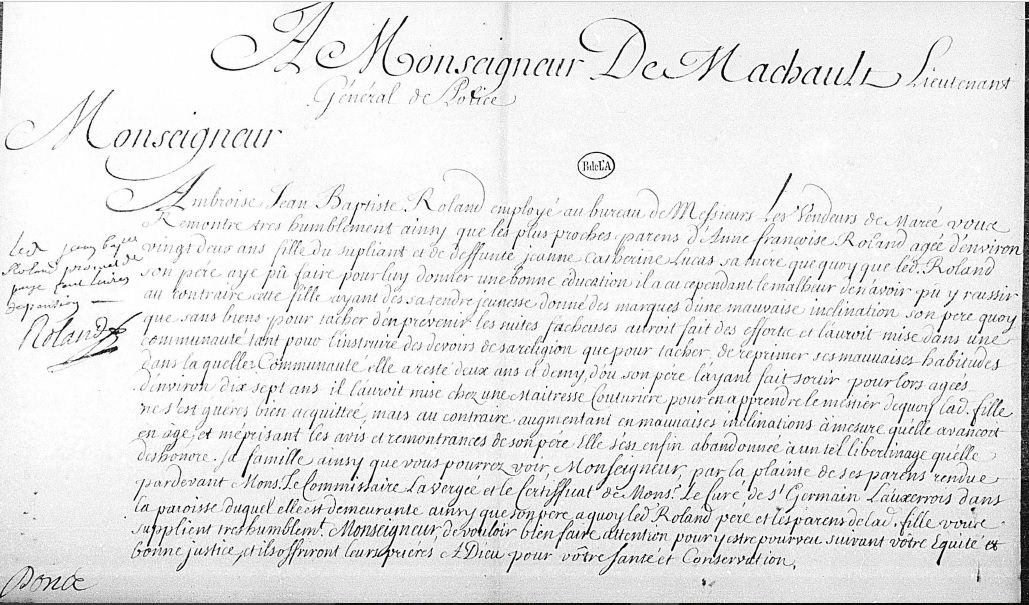 A Monseigneur De Machault Lieutenant
Général de Police
Monseigneur
BdelA
Ambroise Jean Baptiste Roland employé au bureau de Messieurs Les Vendeurs de Marée vous
Remontre tres humblement ainsy que les plus proches parens d'Anne françoise Roland ageé d'environ
vingt deux ans fille du supliant et de deffunte jeanne Catherine Lucas sa mere que quoy que led. Roland
son pére aye pû faire pour luy donner une bonne éducation il a eu cependant le malheur de n'avoir pû y reussir
au contraire cette fille ayant dés sa tendre jeunesse donné des marques d'une mauvaise inclination son pere quoy
que sans biens pour tacher d'en prévenir les suites facheuses auroit fait des efforts et l'auroit mise dans une
communauté tant pour l'instruire des devoirs de sa religion que pour tacher de reprimer ses mauvaises habitudes
dans laquelle Communauté elle a resté deux ans et demy, d'ou son pére l'ayant fait sortir pour lors ageé
d'environ dix sept ans il l'auroit mise chez une Maitresse Couturiére pour en apprendre le mestier dequoy lad. fille
ne s'est guéres bien acquitteé, mais au contraire augmentant en mauvaises inclinations à mesure qu'elle avancoit
en âge, et méprisant les avis et remontrances de son pere Elle s'est enfin abandonneé a un tel libertinage qu'elle
deshonore sa famille ainsy que vous pourrez voir, Monseigneur, par la plainte de ses parens rendue
pardevant Mons. Le Commissaire Lavergeé et le Certificat de Mons. Le Curé de St Germain L'auxerrois dans
la paroisse duquel elle est demeurante ainsy que son pére, a quoy led. Roland pére et les parens de lad. fille vous
supplient tres humblemt. Monseigneur, de vouloir bien faire attention pour y estre pourveu suivant vôtre Equité et
bonne justice, et ils offriront leurs priéres A Dieu pour vôtre santé et Conservation.
Led jean bapte
Roland promet de
paye
Roland